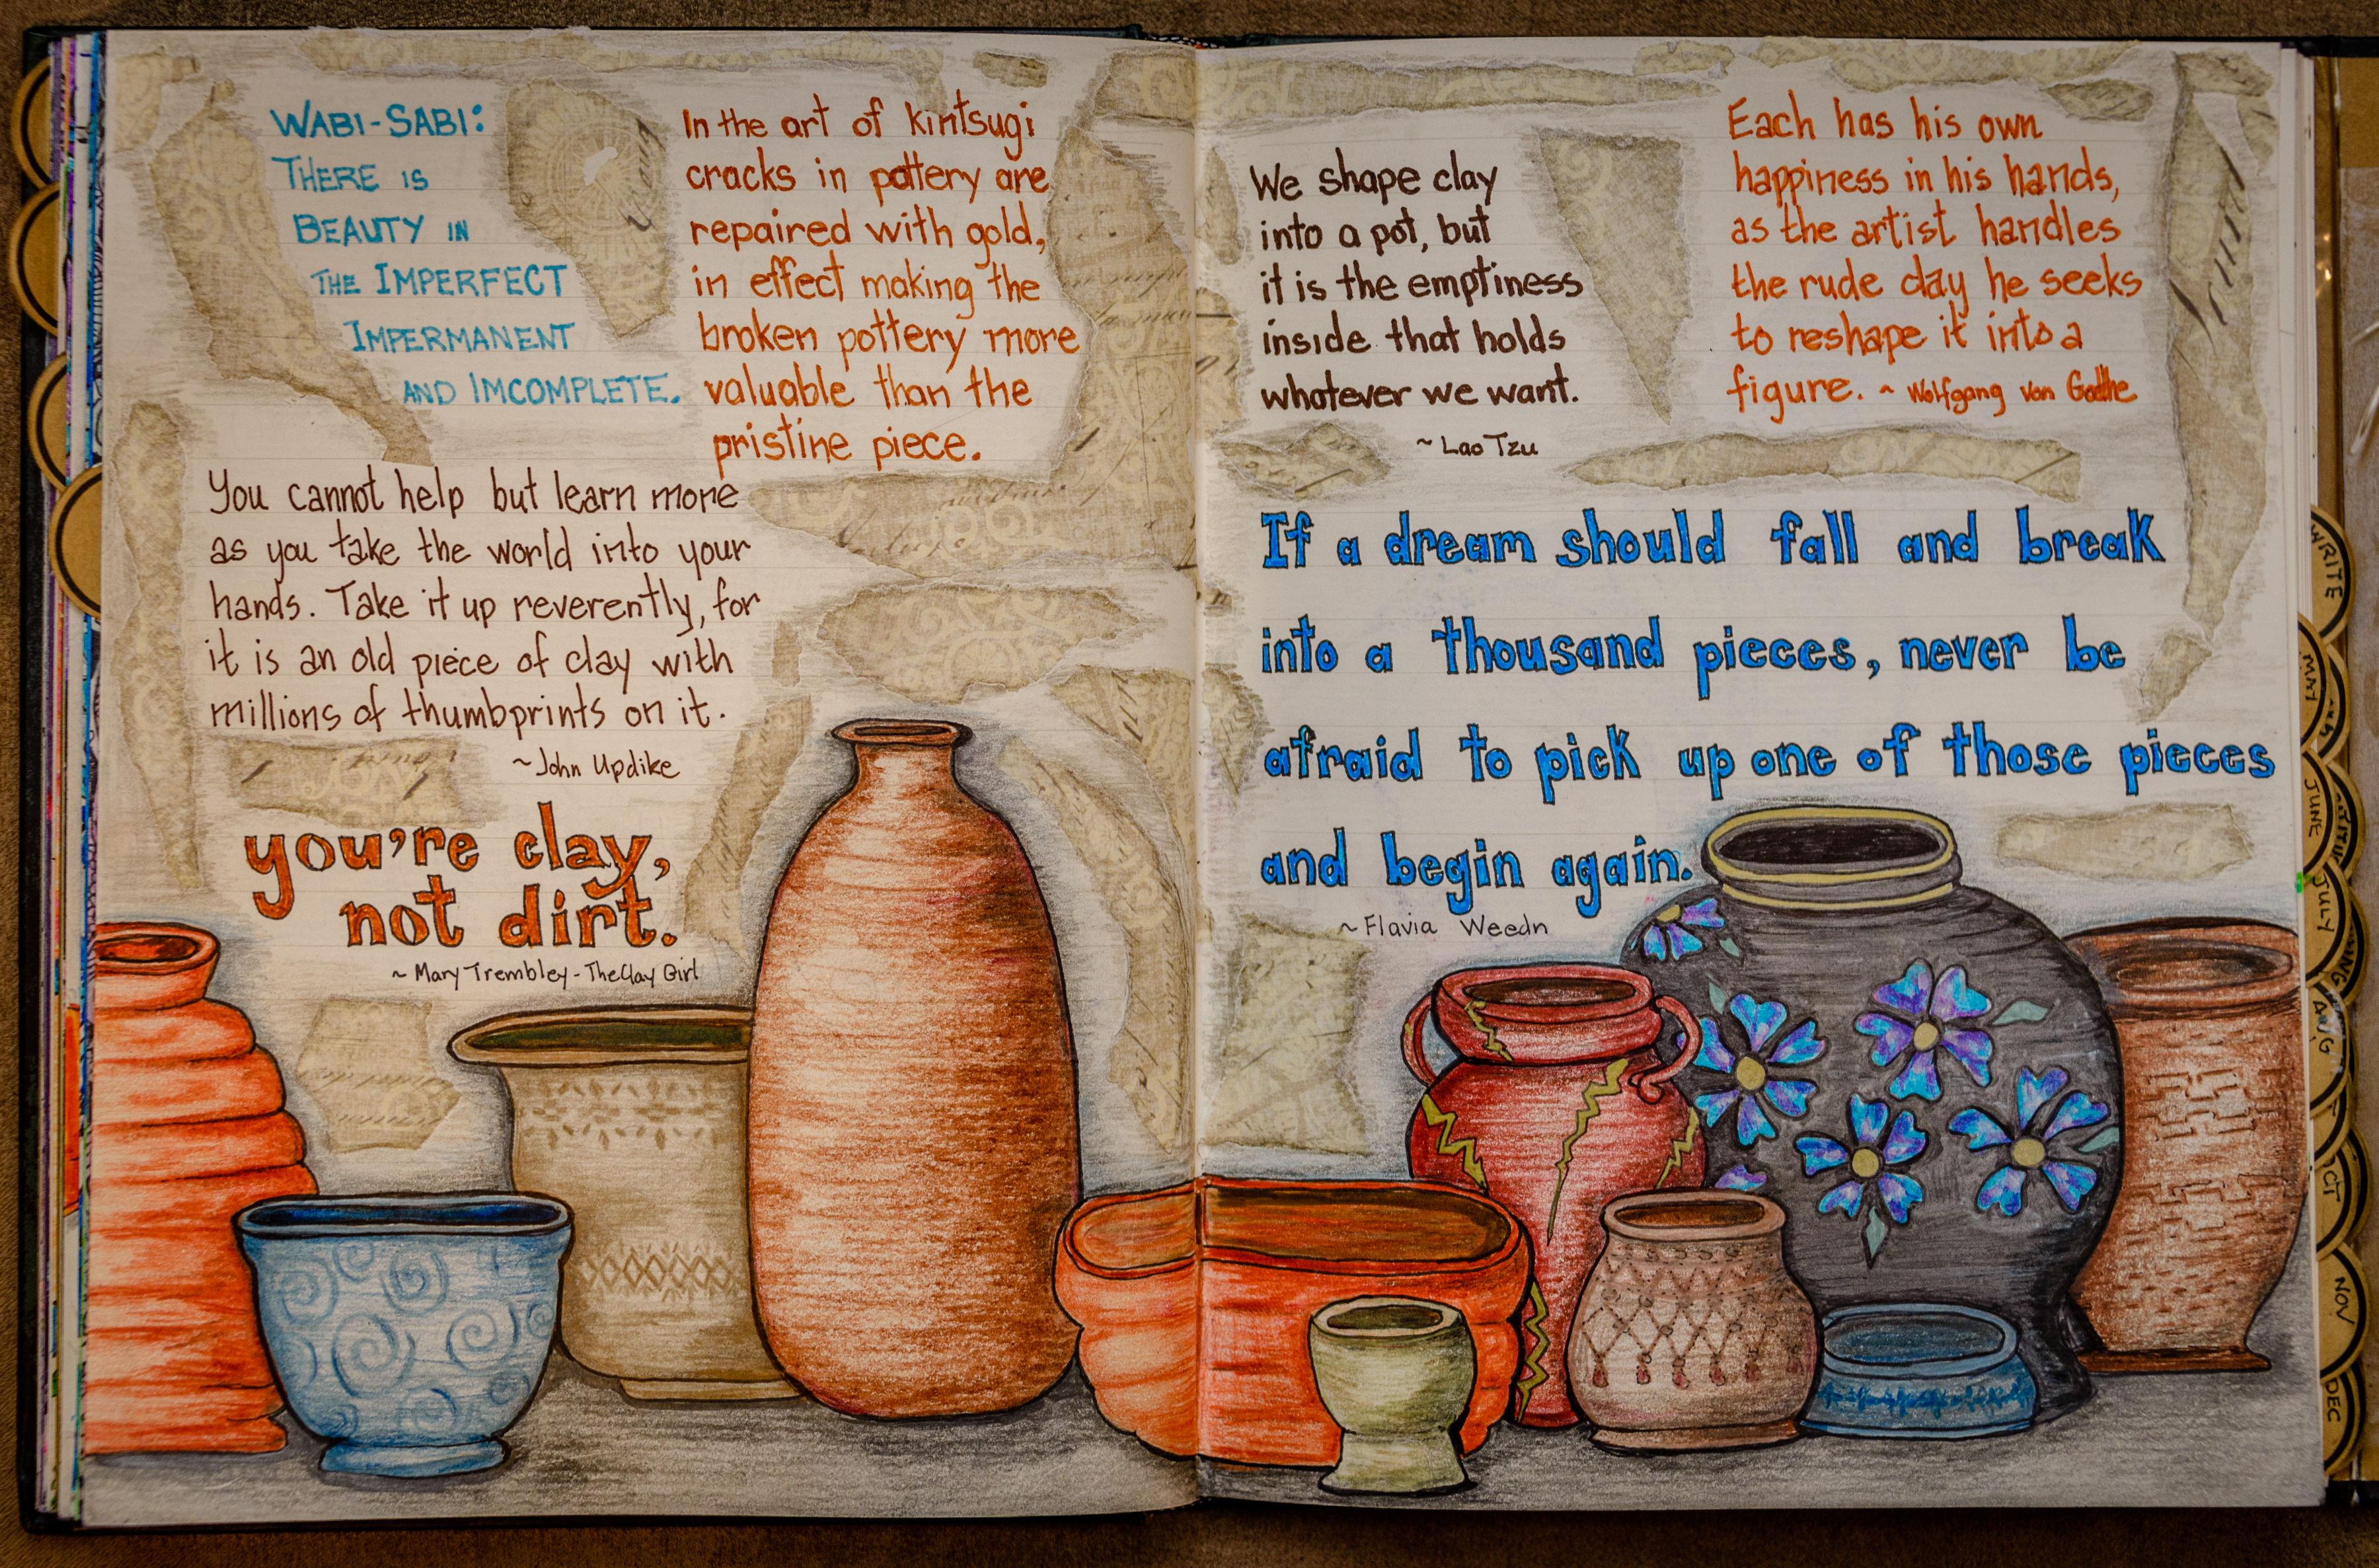 WABI-SABI:
THERE IS
BEAUTY IN
THE IMPERFECT
IMPERMANENT
AND IMCOMPLETE.
In the art of kintsugi
cracks in pottery are
repaired with gold,
in effect making the
broken pottery more
valuable than the
pristine piece.
You cannot help but learn more
as you take the world into your
hands. Take it up reverently, for
it is an old piece of clay with
millions of thumbprints on it.
~John Updike
you're clay,
not dirt.
~ Mary Trembley - The Clay Girl
We shape clay
into a pot, but
it is the emptiness
inside that holds
whatever we want.
~ Lao Tzu
Each has his own
happiness in his hands,
as the artist handles
the rude clay he seeks
to reshape it into a
figure. ~ Wolfgang von Goethe
If a dream should fall and break
into a thousand pieces, never be
afraid to pick up one of those pieces
and begin again.
~ Flavia Weedn
WRITE
MAY
JUNE
JULY
AUG
CT
NOV
DEC